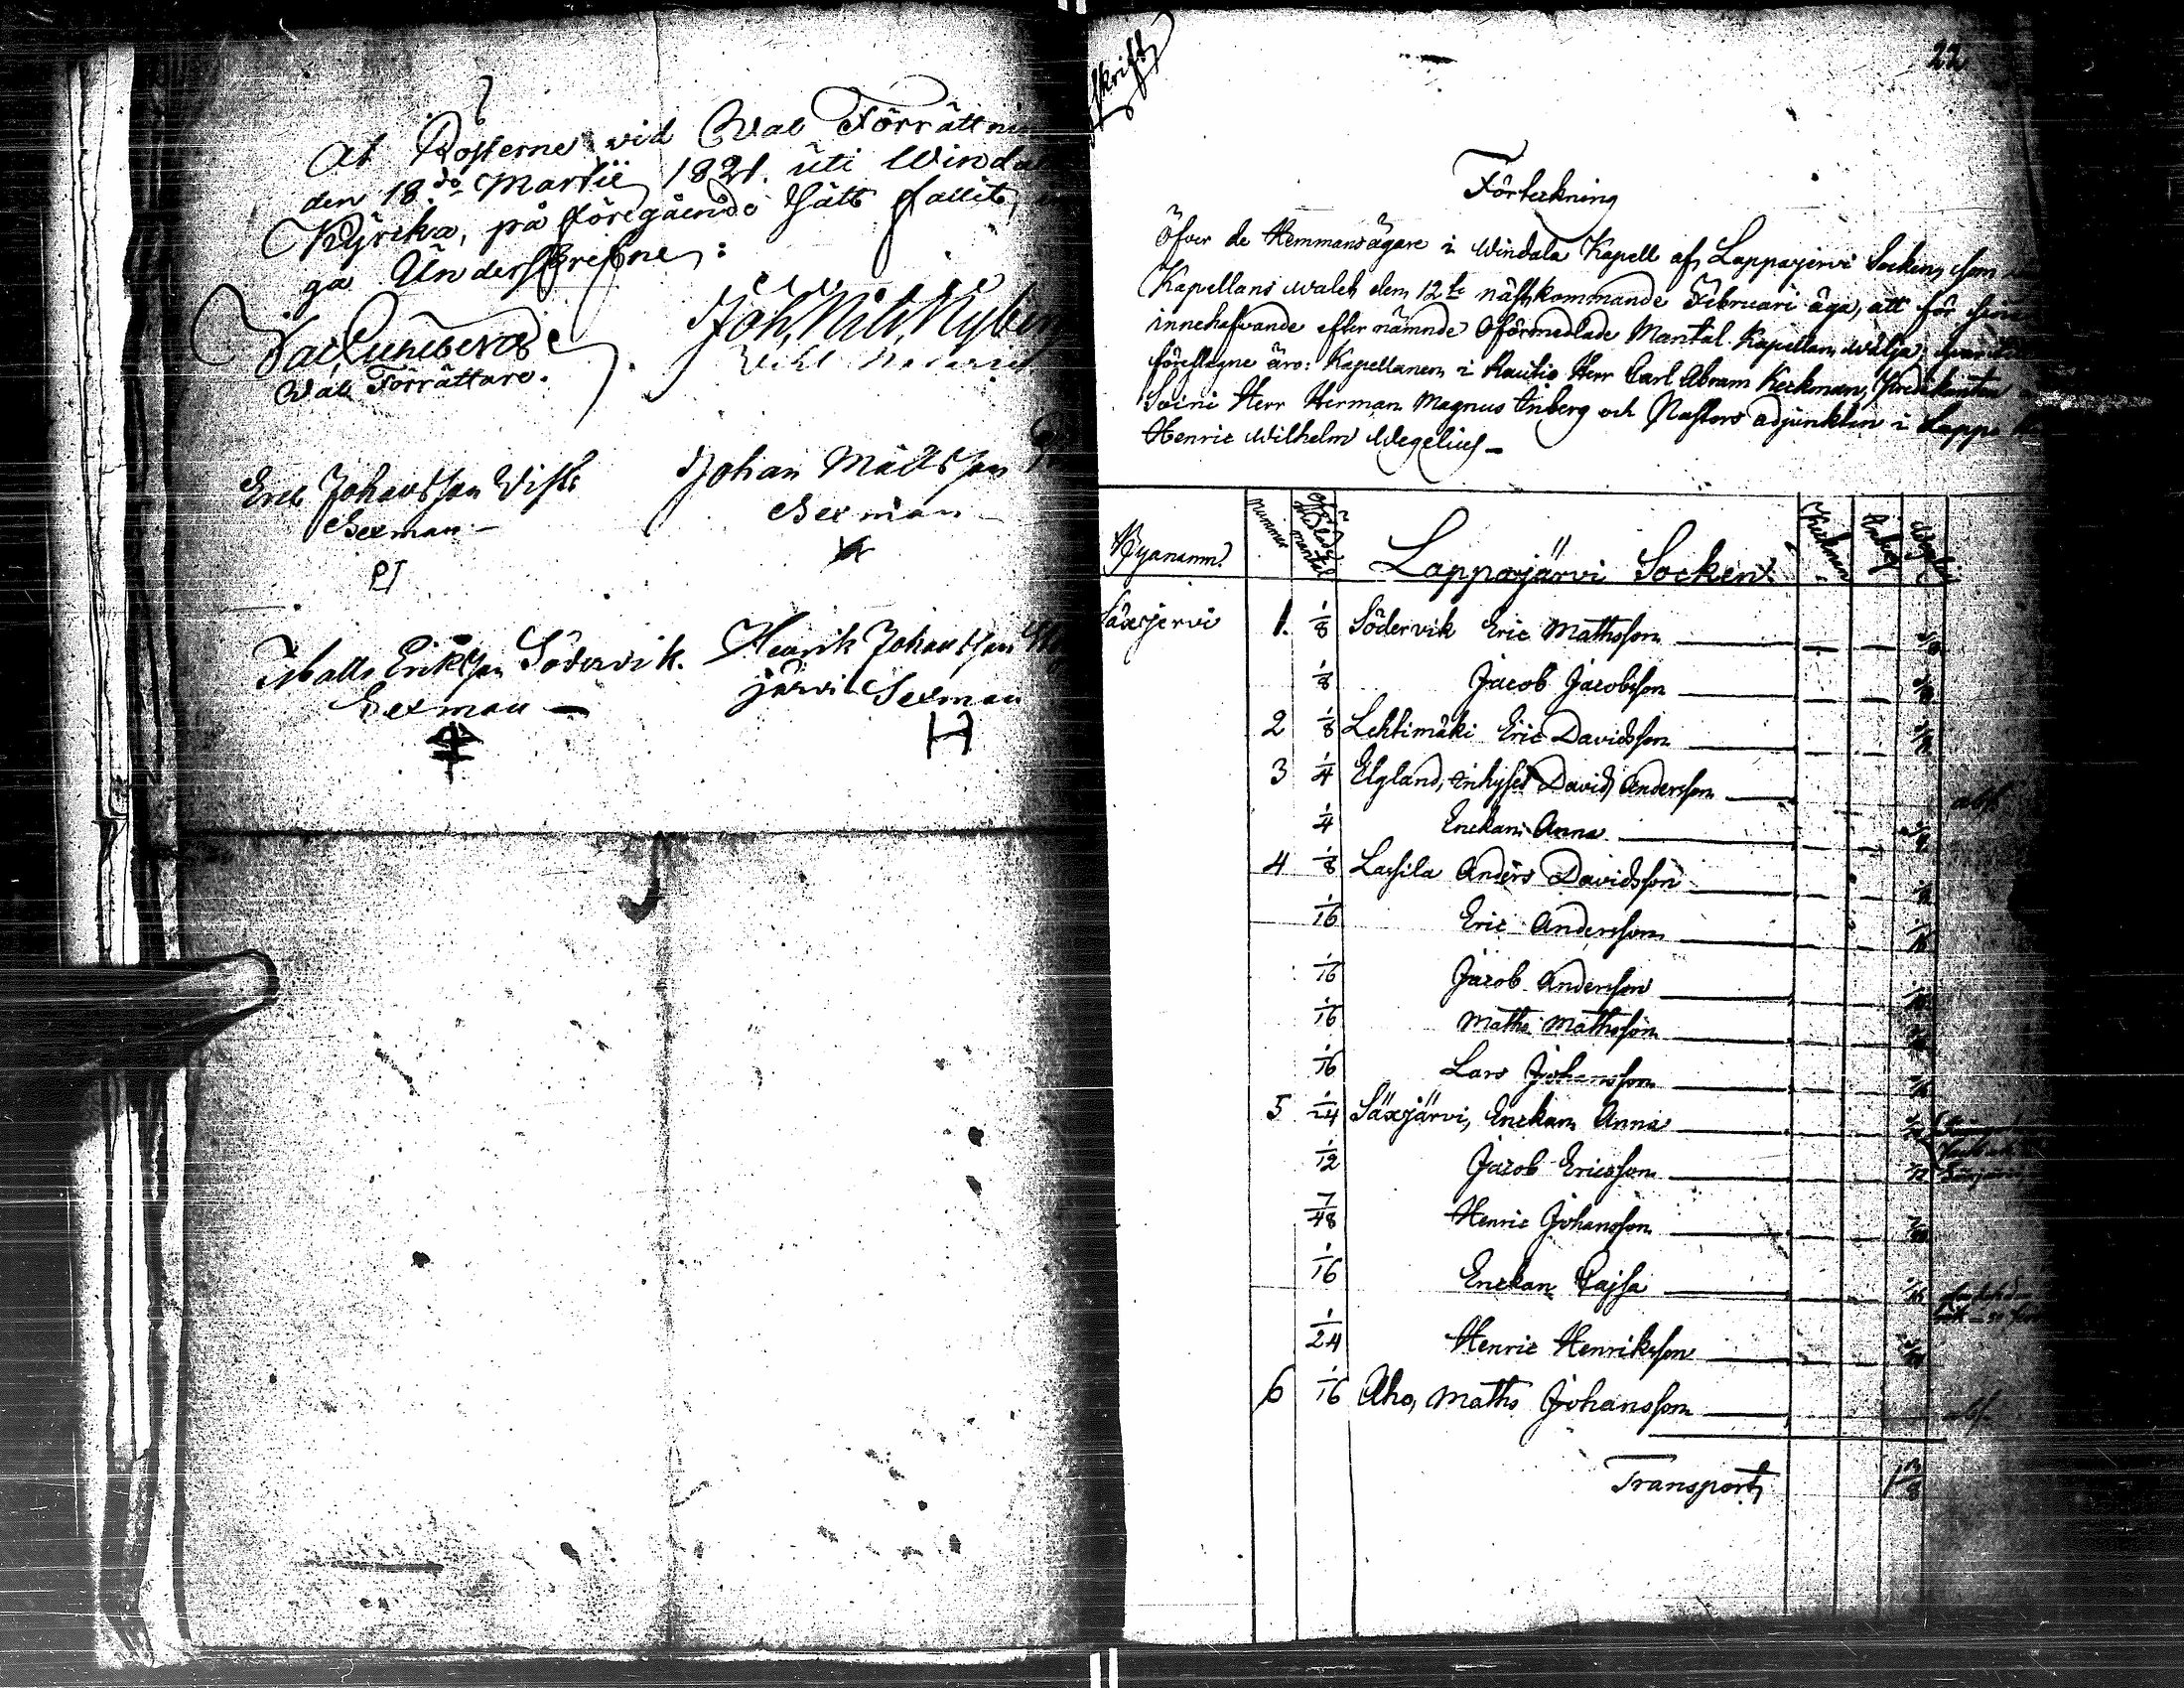 At Rösterne vid Val Förrättni
den 18.de Martii 1821. uti Winda
Kyrcka, på föregående sätt fallit,
ga Underskrefne:
Joh. Nils Nyberg
Val Förrättare.
Eric Johansson Viste
Sexman
Johan Mattsson
Sexman
Matts Eriksson Södervik.
Sexman
Henrik Johansson
järvi Sexman
H
skrift
22
Förteckning
Öfver de Hemmansägare i Windala Kapell af Lappajervi Socken, som
Kapellans valet den 12te nästkommande Februari äga, att för sina
innehafvande efternämnde Oförmedlade Mantal Kapellan välja,
föreslagne äro: Kapellanen i Rautio Herr Carl Abram Keckman, Predikanten
Soini Herr Herman Magnus Enberg och Pastors adjunkten i Lappo
Henric Wilhelm Wegelius
Byanamn
Nummer
mantal
Lappajärvi Socken
Keckman
Enberg
Wegelius
Säxjervi 1. 1/8 Södervik Eric Mathsson 1/8
1/8 Jacob Jacobsson 1/8
2 1/8 Lehtimäki Eric Davidsson 1/8
3 1/4 Elgland, Inhyses David Andersson abs.
1/4 Enckan Anna 1/4
4 1/8 Lassila Anders Davidsson 1/8
1/16 Eric Andersson 1/16
1/16 Jacob Andersson 1/16
1/16 Maths Mathsson 1/16
1/16 Lars Johansson 1/16
5 1/24 Säxjärvi, Enckan Anna 1/24
1/12 Jacob Ericsson 1/12
7/48 Henric Johansson 7/48
1/16 Enckan Cajsa 1/16
1/24 Henric Henriksson 1/24
6 1/16 Aho, Maths Johansson abs.
Transport 1 3/8